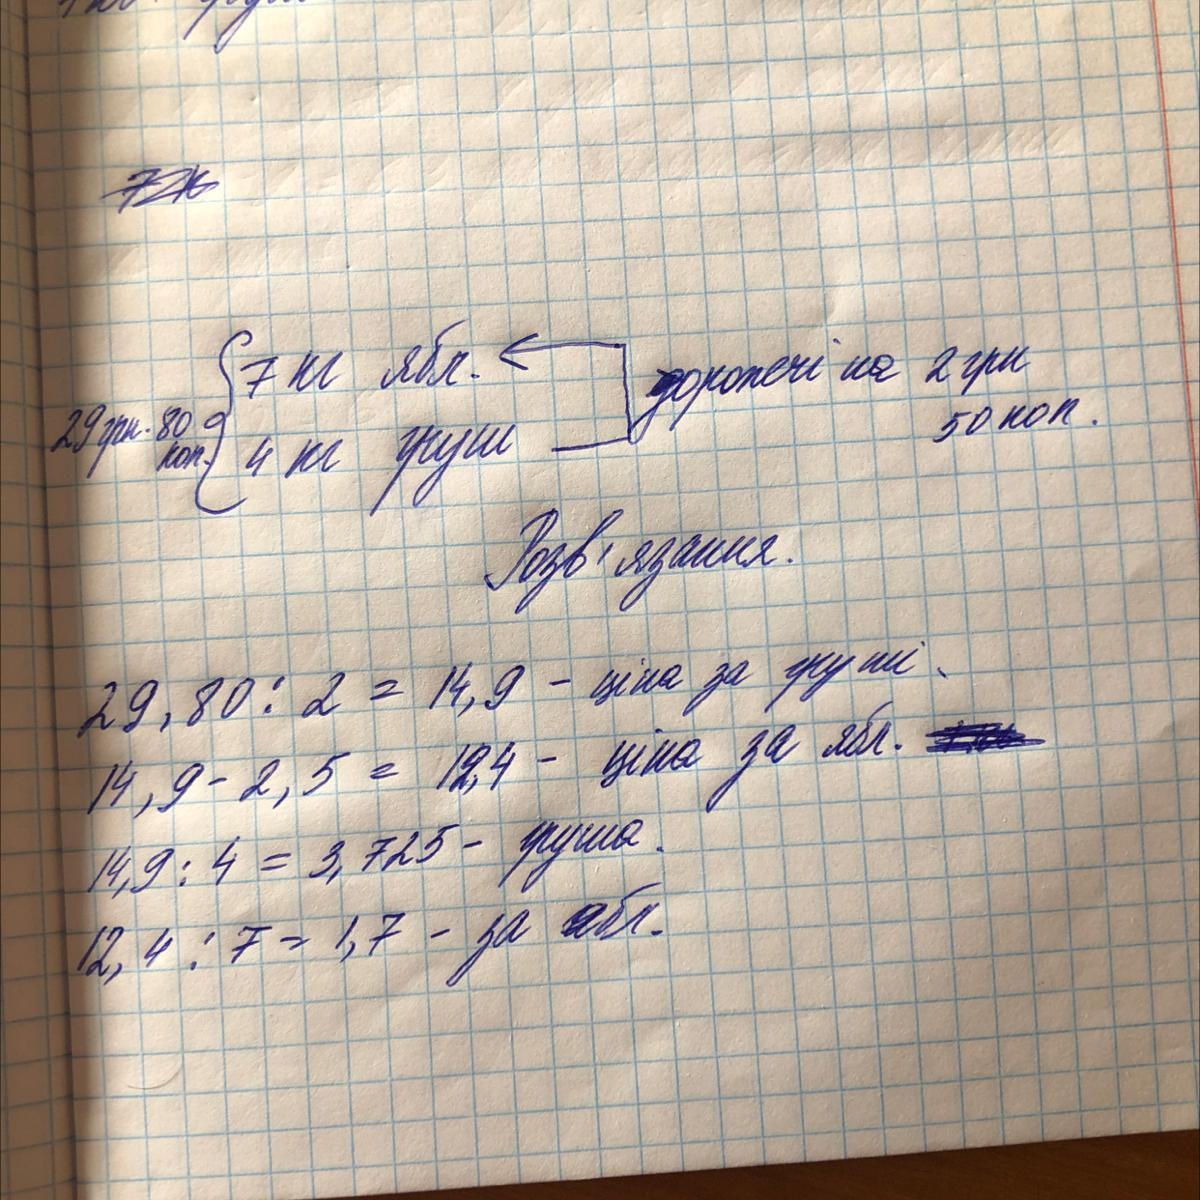 7 кг ябл. дорожчі на 2 грн
29 грн. 80 коп. 50 коп.
4 кг груш
Розв'язання.
29,80 : 2 = 14,9 - ціна за груші.
14,9 - 2,5 = 12,4 - ціна за ябл.
14,9 : 4 = 3,725 - груша.
12,4 : 7 = 1,7 - за ябл.